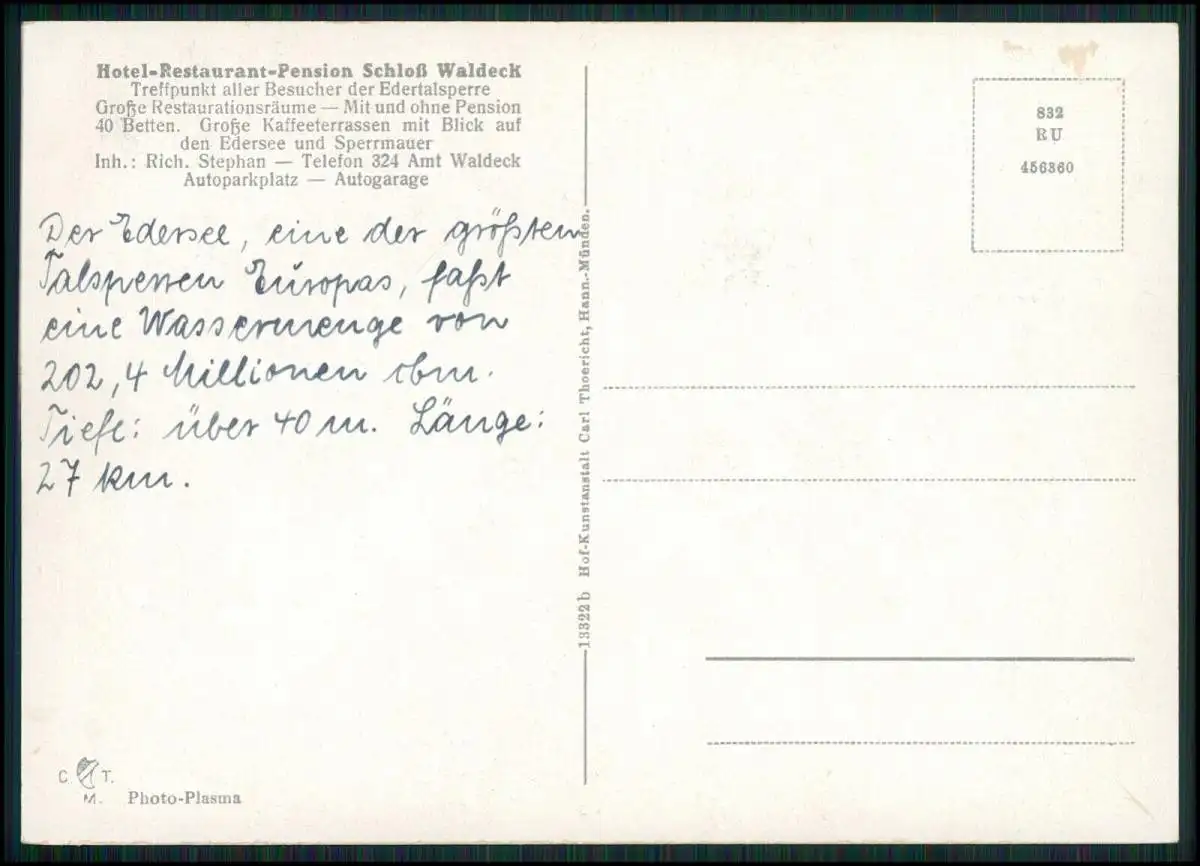 Hotel-Restaurant-Pension Schloß Waldeck
Treffpunkt aller Besucher der Edertalsperre
Große Restaurationsräume — Mit und ohne Pension
40 Betten. Große Kaffeeterrassen mit Blick auf
den Edersee und Sperrmauer
Inh.: Rich. Stephan — Telefon 324 Amt Waldeck
Autoparkplatz — Autogarage
Der Edersee, eine der größten
Talsperren Europas, faßt
eine Wassermenge von
202,4 Millionen cbm.
Tiefe: über 40 m. Länge:
27 km.
C. T.
M. Photo-Plasma
13322 b Hof-Kunstanstalt Carl Thoericht, Hann.-Münden.
832
RU
456360